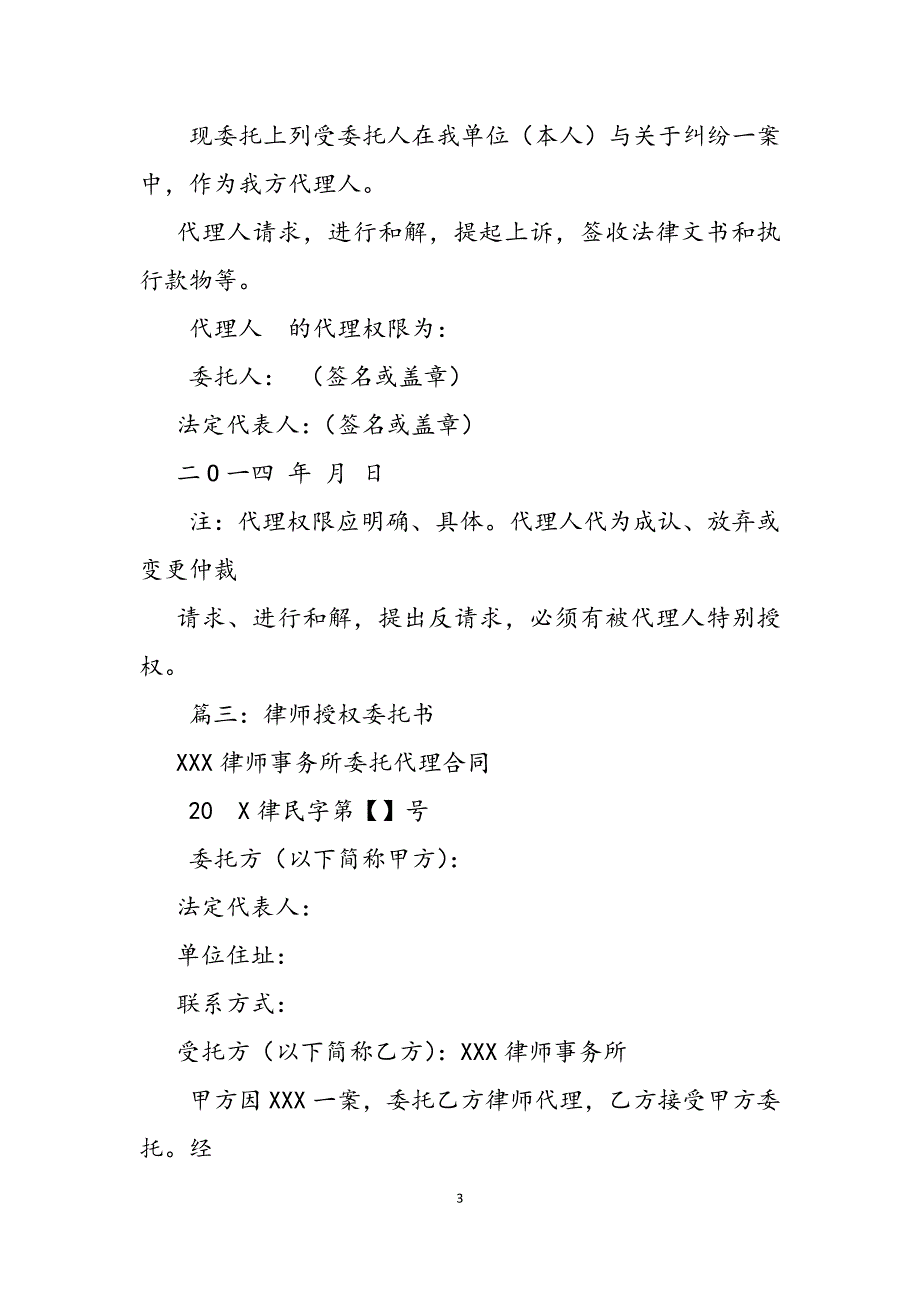 现委托上列受委托人在我单位（本人）与关于纠纷一案
中，作为我方代理人。
代理人请求，进行和解，提起上诉，签收法律文书和执
行款物等。
代理人　的代理权限为：
委托人： （签名或盖章）
法定代表人：（签名或盖章）
二0一四 年 月 日
注：代理权限应明确、具体。代理人代为成认、放弃或
变更仲裁
请求、进行和解，提出反请求，必须有被代理人特别授
权。
篇三：律师授权委托书
XXX律师事务所委托代理合同
20　X律民字第【】号
委托方（以下简称甲方）：
法定代表人：
单位住址：
联系方式：
受托方（以下简称乙方）：XXX律师事务所
甲方因XXX一案，委托乙方律师代理，乙方接受甲方委
托。经
3